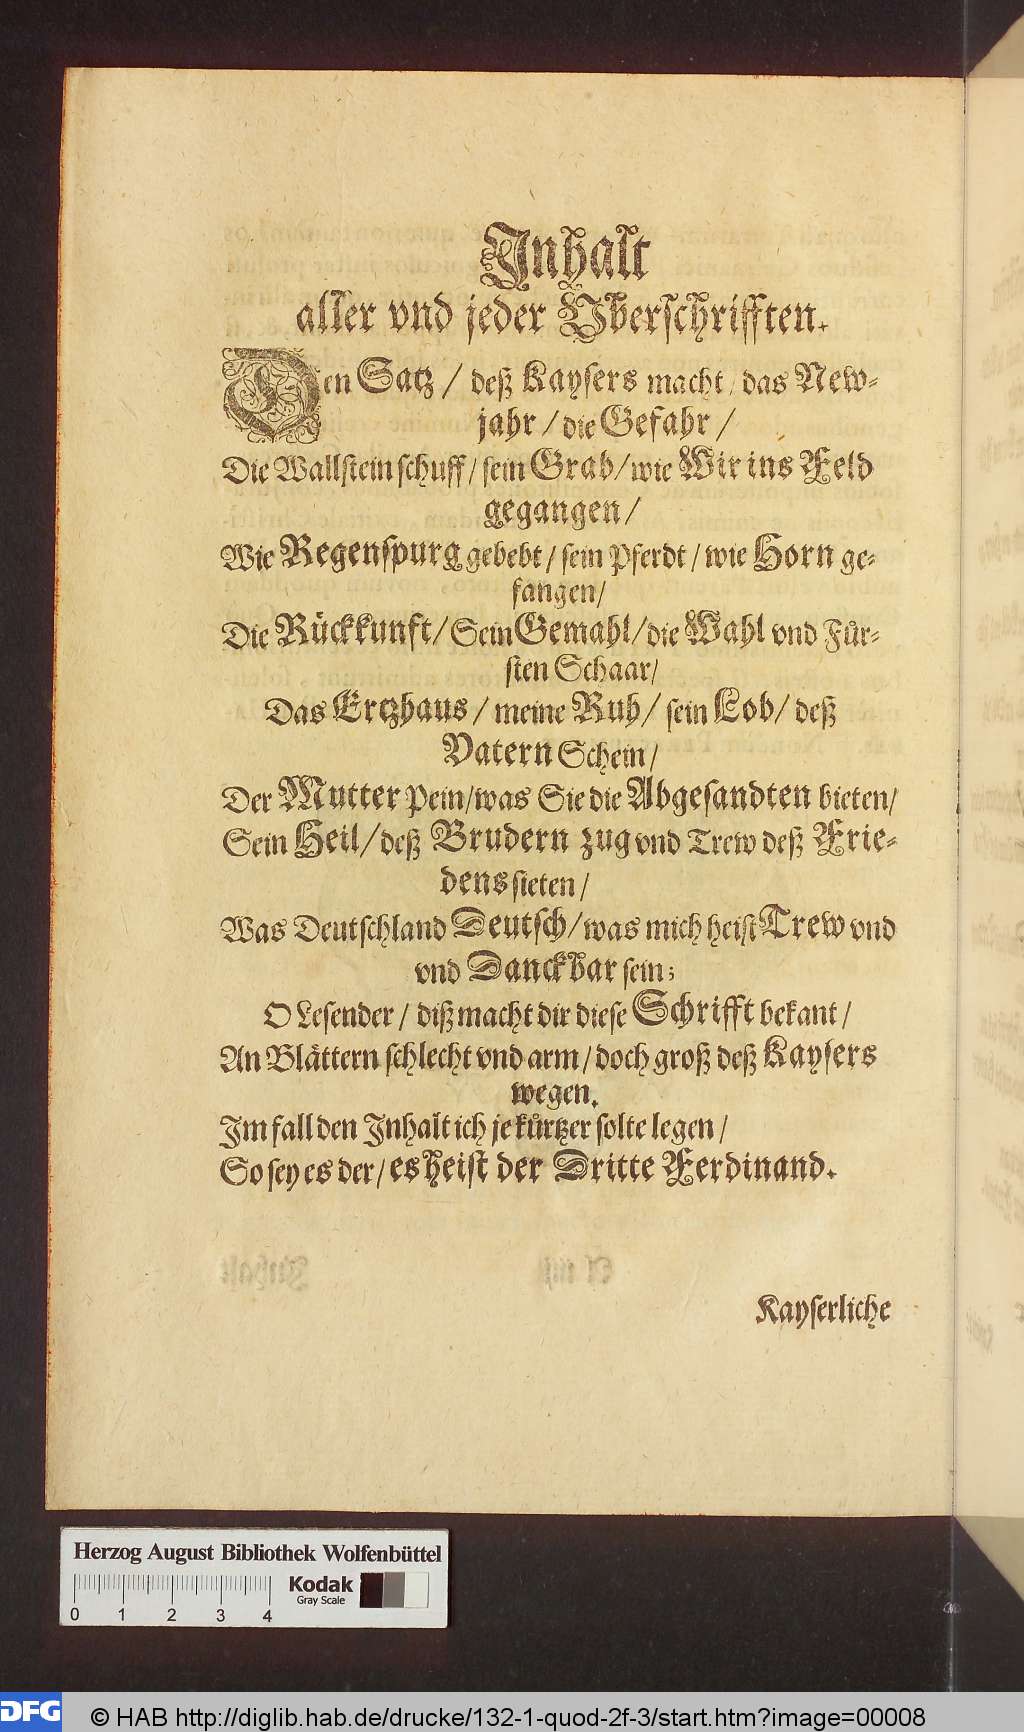 Inhalt
aller vnd jeder Vberschrifften.
Den Satz / deß Kaysers macht / das New-
jahr / die Gefahr /
Die Wallstein schuff / sein Grab / wie Wir ins Feld
gegangen /
Wie Regenspurg gebebt / sein Pferdt / wie Horn ge-
fangen /
Die Rückkunfft / Sein Gemahl / die Wahl vnd Fůr-
sten Schaar /
Das Ertzhaus / meine Ruh / sein Lob / deß
Vatern Schein /
Der Mutter Pein / was Sie die Abgesandten bieten /
Sein Heil / deß Brudern zug vnd Trew deß Frie-
dens sieten /
Was Deutschland Deutsch / was mich heist Trew vnd
vnd Danckbar sein;
O Lesender / diß macht dir diese Schrifft bekant /
An Blättern schlecht vnd arm / doch groß deß Kaysers
wegen.
Im fall den Inhalt ich je kůrtzer solte legen /
So sey es der / es heist der Dritte Ferdinand.
Kayserliche
Herzog August Bibliothek Wolfenbüttel
Kodak
Gray Scale
0 1 2 3 4
DFG © HAB http://diglib.hab.de/drucke/132-1-quod-2f-3/start.htm?image=00008